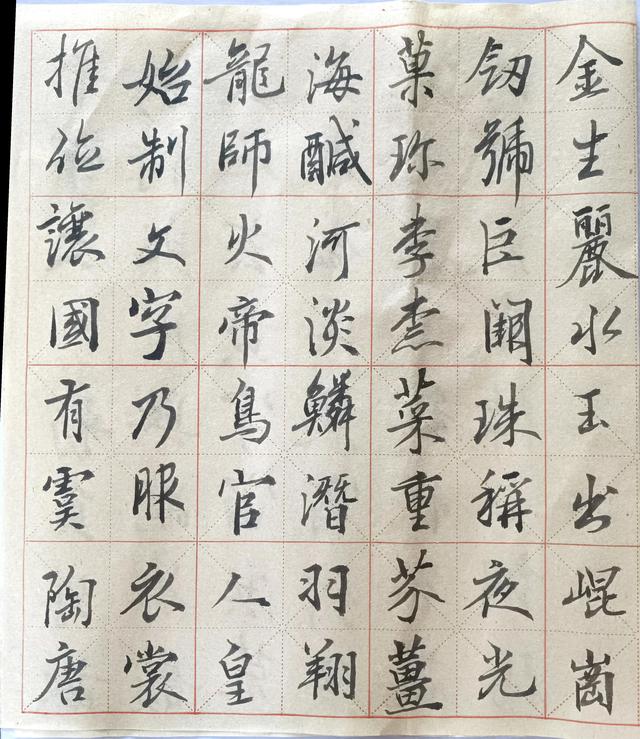 金生麗水玉出崐崗
釰號巨闕珠稱夜光
菓珎李柰菜重芥薑
海鹹河淡鱗潛羽翔
龍師火帝鳥官人皇
始制文字乃服衣裳
推位讓國有虞陶唐